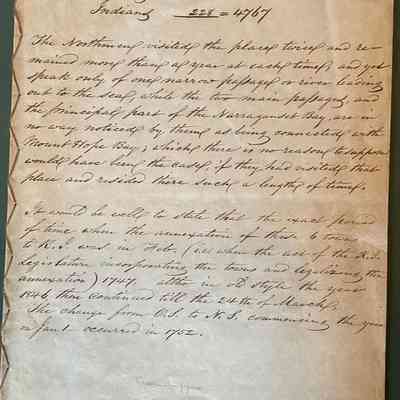 Indians 228 = 4767
The Northmen visited the place twice and re-
mained more than a year at each time, and yet
speak only of one narrow passage or river leading
out to the sea, while the two main passages, and
the principal part of the Narraganset Bay, are in
no way noticed by them as being connected with
Mount Hope Bay; which there is no reason to suppose
would have been the case, if they had visited that
place and resided there such a length of time.
It would be well to state that the exact period
of time when the annexation of these 5 towns
to R.I. was in Feb. (i.e. when the act of the R.I.
Legislature incorporating the towns and legalizing the
annexation) 1747. altho in old style the year
1846 then continued till the 24th of March,
The change from O.S. to N.S. commencing the year
in Jan 1 occurred in 1752.